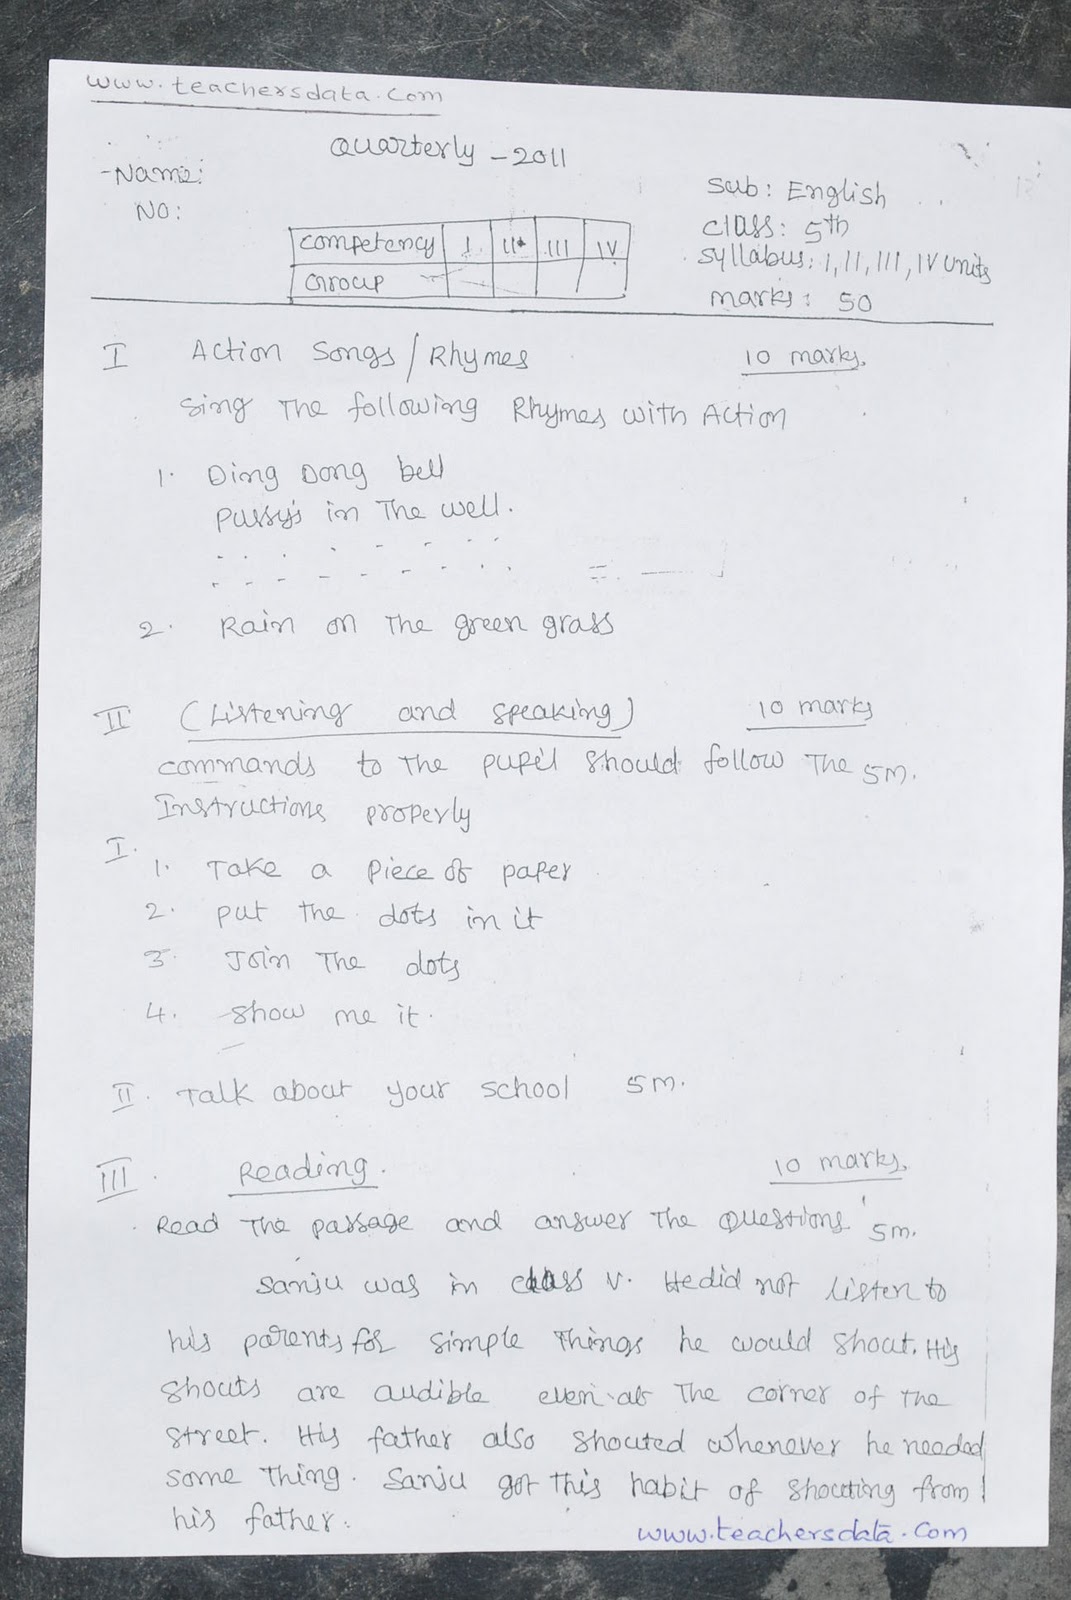 www.teachersdata.com
Quarterly - 2011
Name:
NO:
Sub: English
class: 5th
Syllabus: I, II, III, IV units
marks: 50
competency I II III IV
Group
I Action Songs/Rhymes 10 marks.
Sing The following Rhymes with Action
1. Ding Dong bell
pussy's in The well.
2. Rain on The green grass
II (Listening and speaking) 10 marks
commands to The pupil should follow The 5m.
Instructions properly
I.
1. Take a piece of paper
2. put the dots in it
3. Join The dots
4. show me it.
II. Talk about your school 5m.
III. Reading. 10 marks.
Read The passage and answer The questions 5m.
Sanju was in class V. He did not listen to
his parents for simple Things he would shout. His
shouts are audible even at The corner of The
street. His father also shouted whenever he needed
some Thing. Sanju got This habit of shouting from
his father.
www.teachersdata.com